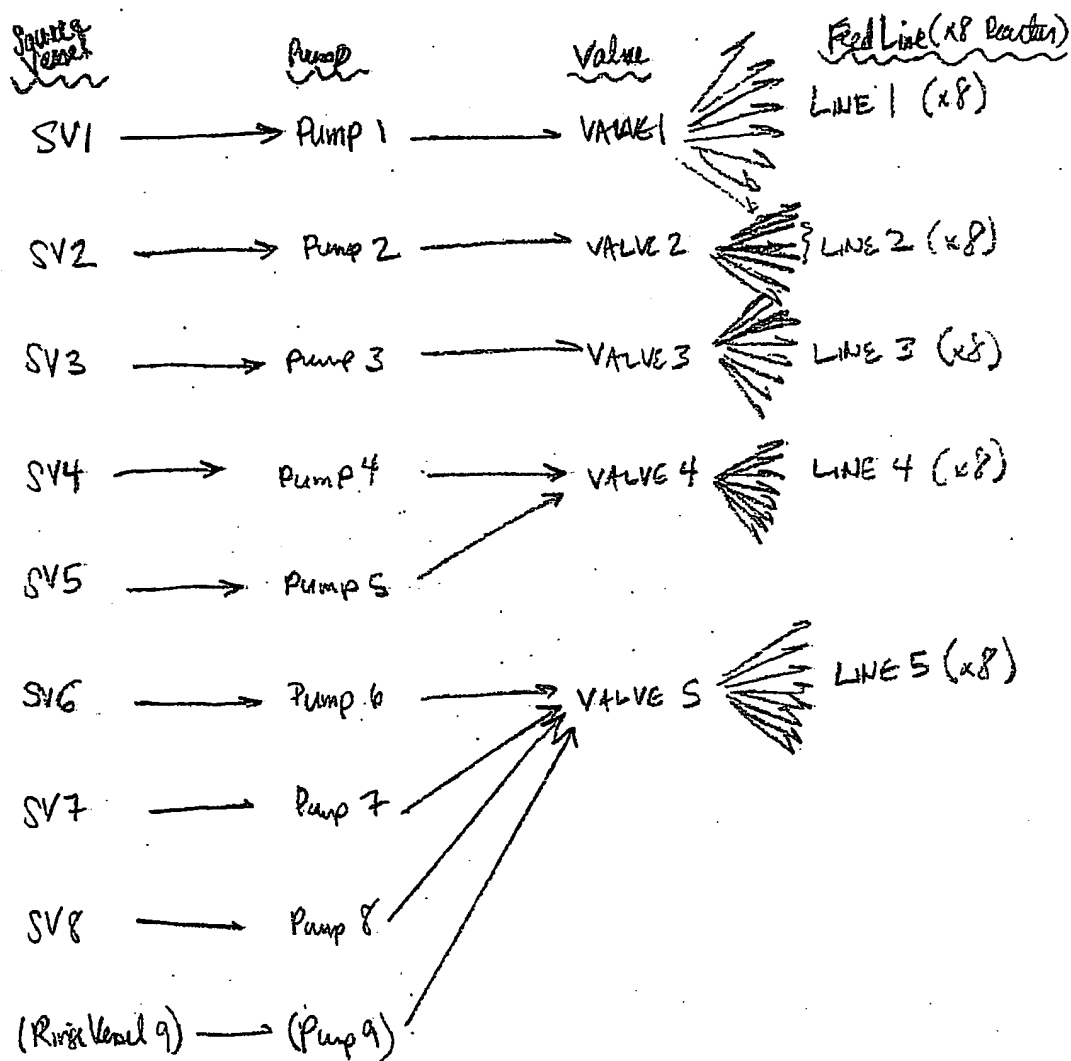 Source Vessel Pump Valve Feed Line (x8 Reactor)
SV1 Pump 1 VALVE 1 LINE 1 (x8)
SV2 Pump 2 VALVE 2 LINE 2 (x8)
SV3 Pump 3 VALVE 3 LINE 3 (x8)
SV4 Pump 4 VALVE 4 LINE 4 (x8)
SV5 Pump 5
SV6 Pump 6 VALVE 5 LINE 5 (x8)
SV7 Pump 7
SV8 Pump 8
(Rinse Vessel 9) (Pump 9)